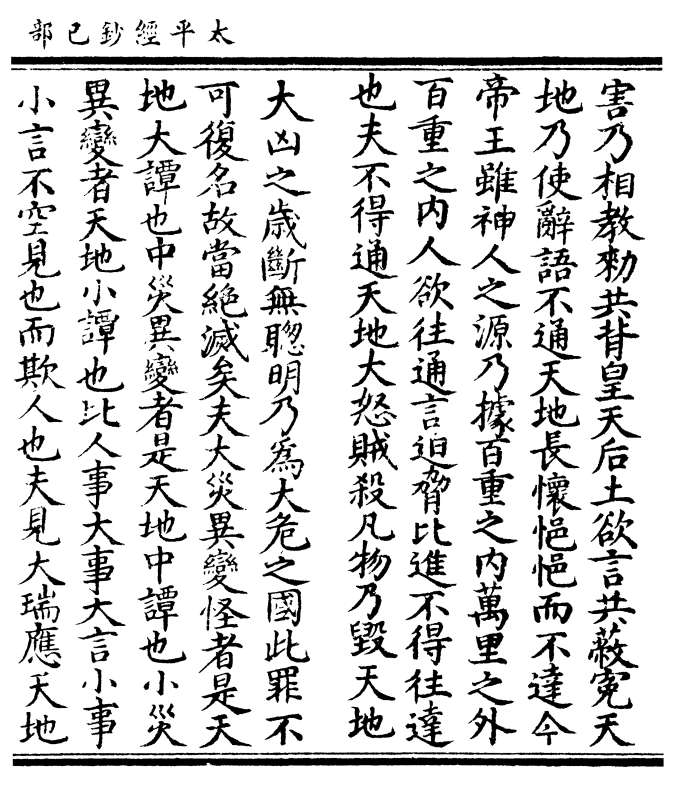 太平經鈔已部
害乃相教勑共背皇天后土欲言共蔽寃天
地乃使辭語不通天地長懷悒悒而不達今
帝王雖神人之源乃據百重之內萬里之外
百重之内人欲往通言迫脅比進不得往達
也夫不得通天地大怒賊殺凡物乃毀天地
大凶之歲斷無聦明乃爲大危之國此罪不
可復名故當絕滅矣夫大災異變怪者是天
地大譚也中災異變者是天地中譚也小災
異變者天地小譚也比人事大事大言小事
小言不空見也而欺人也夫見大瑞應天地